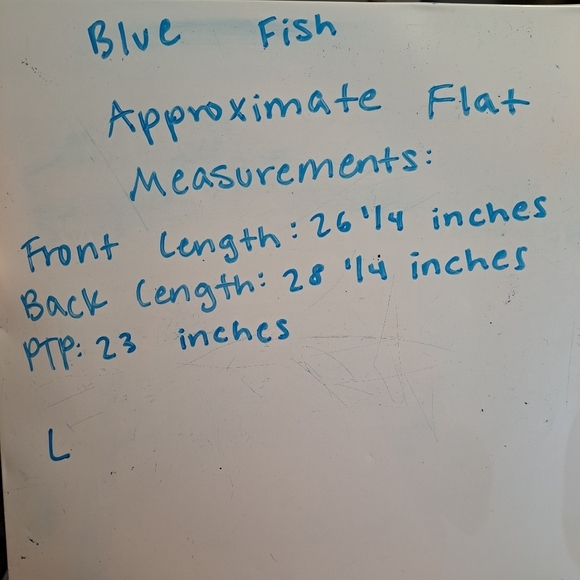 Blue Fish
Approximate Flat
Measurements:
Front Length: 26 1/4 inches
Back Length: 28 1/4 inches
PTP: 23 inches
L